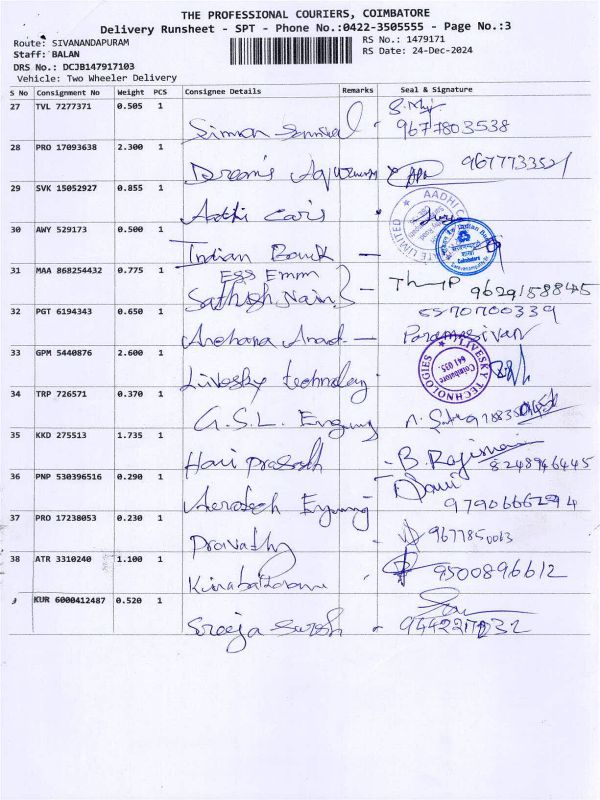 THE PROFESSIONAL COURIERS, COIMBATORE
Delivery Runsheet - SPT - Phone No.:0422-3505555 - Page No.:3
Route: SIVANANDAPURAM
RS No.: 1479171
Staff: BALAN
RS Date: 24-Dec-2024
DRS No.: DCJB147917103
Vehicle: Two Wheeler Delivery
S No Consignment No Weight PCS Consignee Details Remarks Seal & Signature
27 TVL 7277371 0.505 1
9677803538
28 PRO 17093638 2.300 1
Dream's
29 SVK 15052927 0.855 1
Aadhi Cars
30 AWY 529173 0.500 1
Indian Bank
31 MAA 868254432 0.775 1
Sathish Nair
9629158845
32 PGT 6194343 0.650 1
Archana Anad
Paramasivan
33 GPM 5440876 2.600 1
Livesky technology
LIVESKY TECHNOLOGIES
Coimbatore
641 035.
34 TRP 726571 0.370 1
G.S.L.
35 KKD 275513 1.735 1
Hari prasath
B. Rajimai
8248946445
36 PNP 530396516 0.290 1
37 PRO 17238053 0.230 1
Pravathy
9677850013
38 ATR 3310240 1.100 1
9500896612
KUR 6000412487 0.520 1
Sreeja Suresh